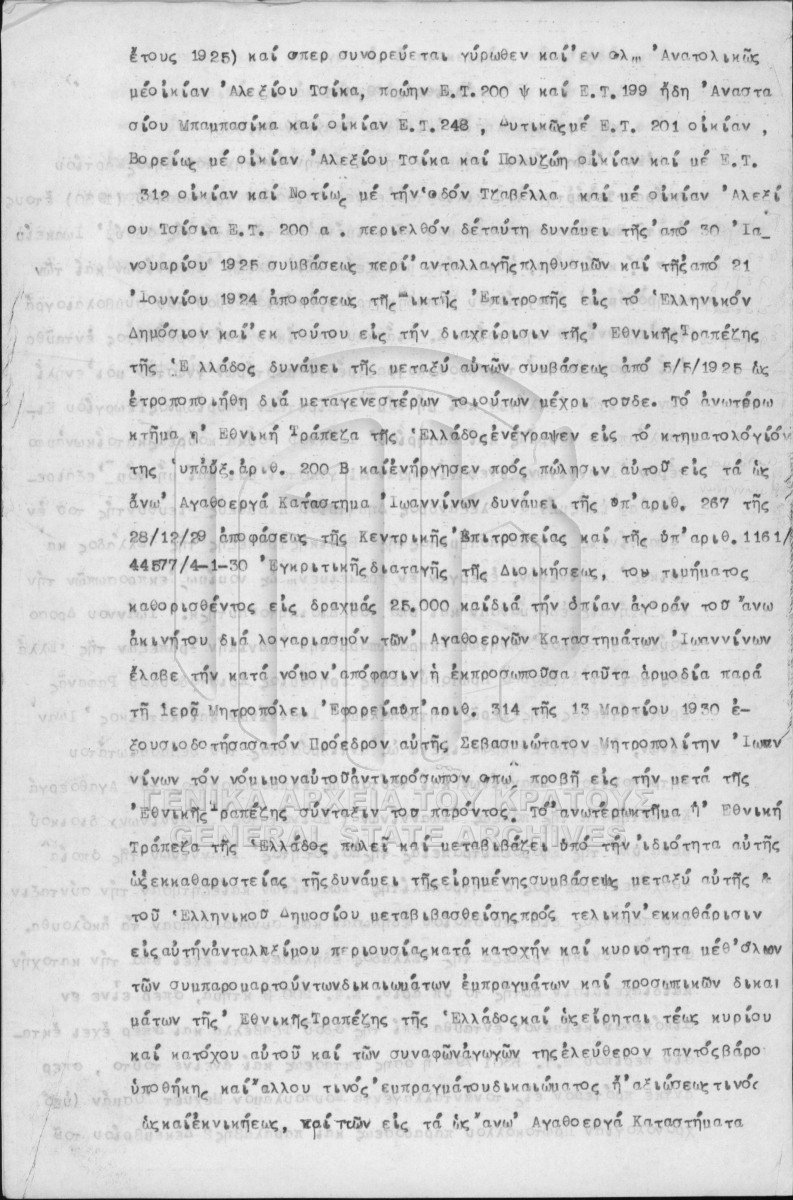 ἔτους 1925) καί ὅπερ συνορεύεται γύρωθεν καί ἐν Ἀνατολικῶς
μέ οἰκίαν Ἀλεξίου Τσίκα, πρώην Ε.Τ. 200 ψ καί Ε.Τ. 199 ἤδη Ἀναστα
σίου Μπαμπασίκα καί οἰκίαν Ε.Τ. 248, Δυτικῶς μέ Ε.Τ. 201 οἰκίαν,
Βορείως μέ οἰκίαν Ἀλεξίου Τσίκα καί Πολυζώη οἰκίαν καί μέ Ε.Τ.
312 οἰκίαν καί Νοτίως μέ τήν ὁδόν Τζαβέλλα καί μέ οἰκίαν Ἀλεξί
ου Τσίσια Ε.Τ. 200 α. περιελθόν δέ ταύτη δυνάμει τῆς ἀπό 30 Ἰα_
νουαρίου 1925 συμβάσεως περί ἀνταλλαγῆς πληθυσμῶν καί τῆς ἀπό 21
Ἰουνίου 1924 ἀποφάσεως τῆς Μικτῆς Ἐπιτροπῆς εἰς τό Ἑλληνικόν
Δημόσιον καί ἐκ τούτου εἰς τήν διαχείρισιν τῆς Ἐθνικῆς Τραπέζης
τῆς Ἑλλάδος δυνάμει τῆς μεταξύ αὐτῶν συμβάσεως ἀπό 5/5/1925 ὡς
ἐτροποποιήθη διά μεταγενεστέρων τοιούτων μέχρι τοῦδε. Τό ἀνωτέρω
κτῆμα ἡ Ἐθνική Τράπεζα τῆς Ἑλλάδος ἐνέγραψεν εἰς τό κτηματολόγιόν
της ὑπ' αὔξ. ἀριθ. 200 Β καί ἐνήργησεν πρός πώλησιν αὐτοῦ εἰς τά ὡς
ἄνω Ἀγαθοεργά Κατάστημα Ἰωαννίνων δυνάμει τῆς ὑπ' ἀριθ. 267 τῆς
28/12/29 ἀποφάσεως τῆς Κεντρικῆς Ἐπιτροπείας καί τῆς ὑπ' ἀριθ. 1161/
44577/4-1-30 Ἐγκριτικῆς διαταγῆς τῆς Διοικήσεως, του τιμήματος
καθορισθέντος εἰς δραχμάς 25.000 καί διά τήν ὁπίαν ἀγοράν τοῦ ἄνω
ἀκινήτου διά λογαριασμόν τῶν Ἀγαθοεργῶν Καταστημάτων Ἰωαννίνων
ἔλαβε τήν κατά νόμον ἀπόφασιν ἡ ἐκπροσωποῦσα ταῦτα ἁρμοδία παρά
τῇ Ἱερᾷ Μητροπόλει Ἐφορεία ὑπ' ἀριθ. 314 τῆς 13 Μαρτίου 1930 ἐ-
ξουσιοδοτήσασα τόν Πρόεδρον αὐτῆς Σεβασμιώτατον Μητροπολίτην Ἰωαν
νίνων τόν νόμιμον αὐτοῦ ἀντιπρόσωπον ὅπως προβῆ εἰς τήν μετά τῆς
Ἐθνικῆς Τραπέζης σύνταξιν του παρόντος. Τό ἀνωτέρω κτῆμα ἡ Ἐθνική
Τράπεζα τῆς Ἑλλάδος πωλεῖ καί μεταβιβάζει ὑπό τήν ἰδιότητα αὐτῆς
ὡς ἐκκαθαριστείας τῆς δυνάμει τῆς εἰρημένης συμβάσεως μεταξύ αὐτῆς &
τοῦ Ἑλληνικοῦ Δημοσίου μεταβιβασθείσης πρός τελικήν ἐκκαθάρισιν
εἰς αὐτήν ἀνταλαξίμου περιουσίας κατά κατοχήν καί κυριότητα μέθ' ὅλων
τῶν συμπαρομαρτούντων δικαιωμάτων ἐμπραγμάτων καί προσωπικῶν δικαι
μάτων τῆς Ἐθνικῆς Τραπέζης τῆς Ἑλλάδος καί ὡς εἴρηται τέως κυρίου
καί κατόχου αὐτοῦ καί τῶν συναφῶν ἀγωγῶν της ἐλεύθερον παντός βάρο
ὑποθήκης καί ἄλλου τινός ἐμπραγμάτου δικαιώματος ἤ ἀξιώσεως τινός
ὡς καί ἐκνικήσεως, εἰς τά ὡς ἄνω Ἀγαθοεργά Καταστήματα
ΓΕΝΙΚΑ ΑΡΧΕΙΑ ΤΟΥ ΚΡΑΤΟΥΣ
GENERAL STATE ARCHIVES